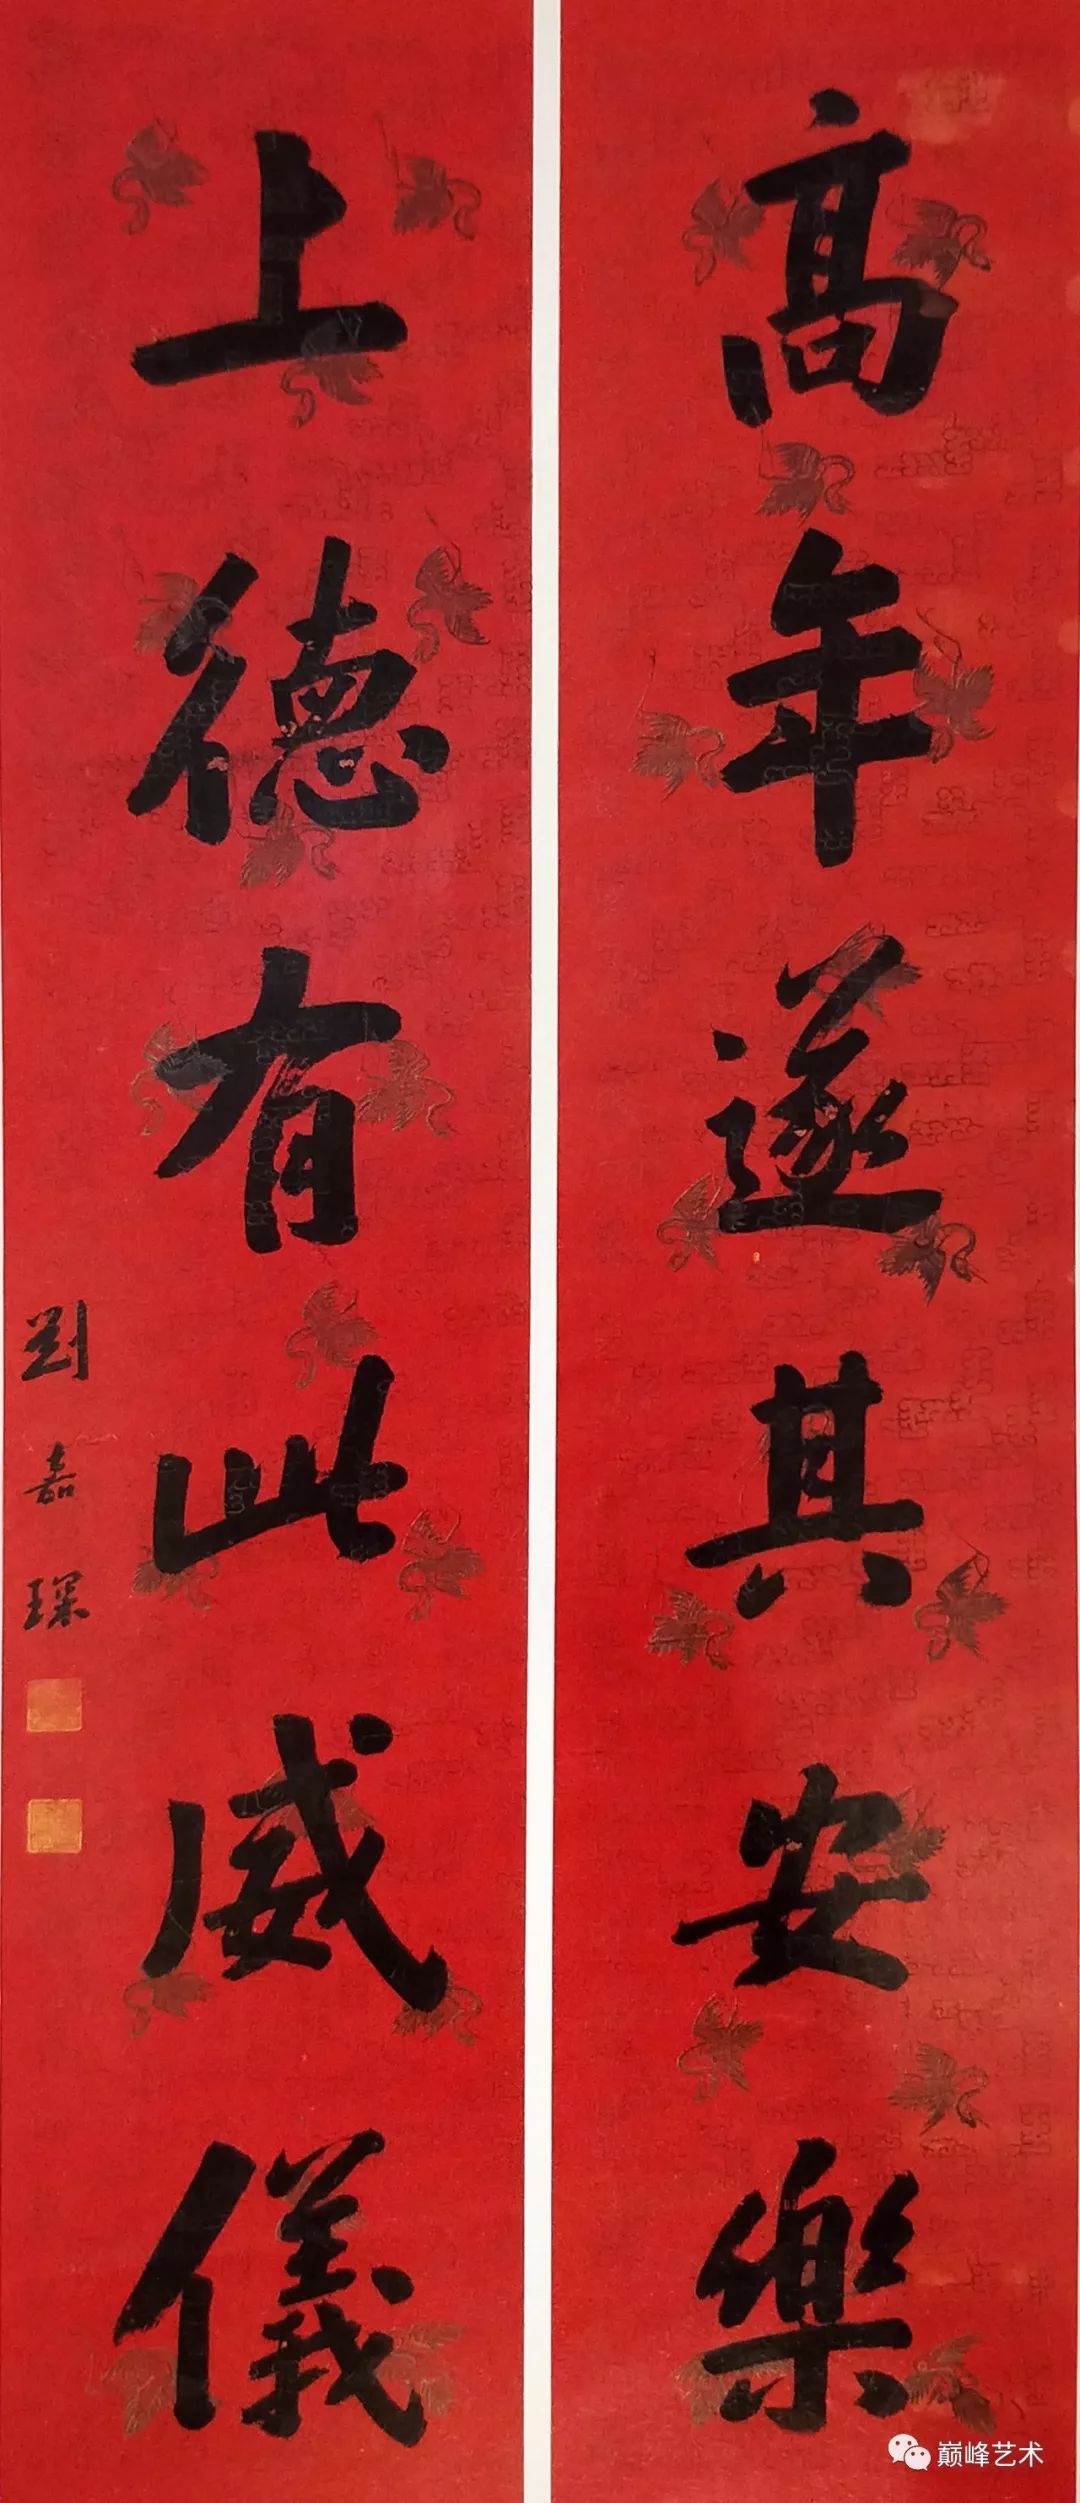 高年遂其安樂
上德有此威儀
劉嘉琛
巅峰艺术